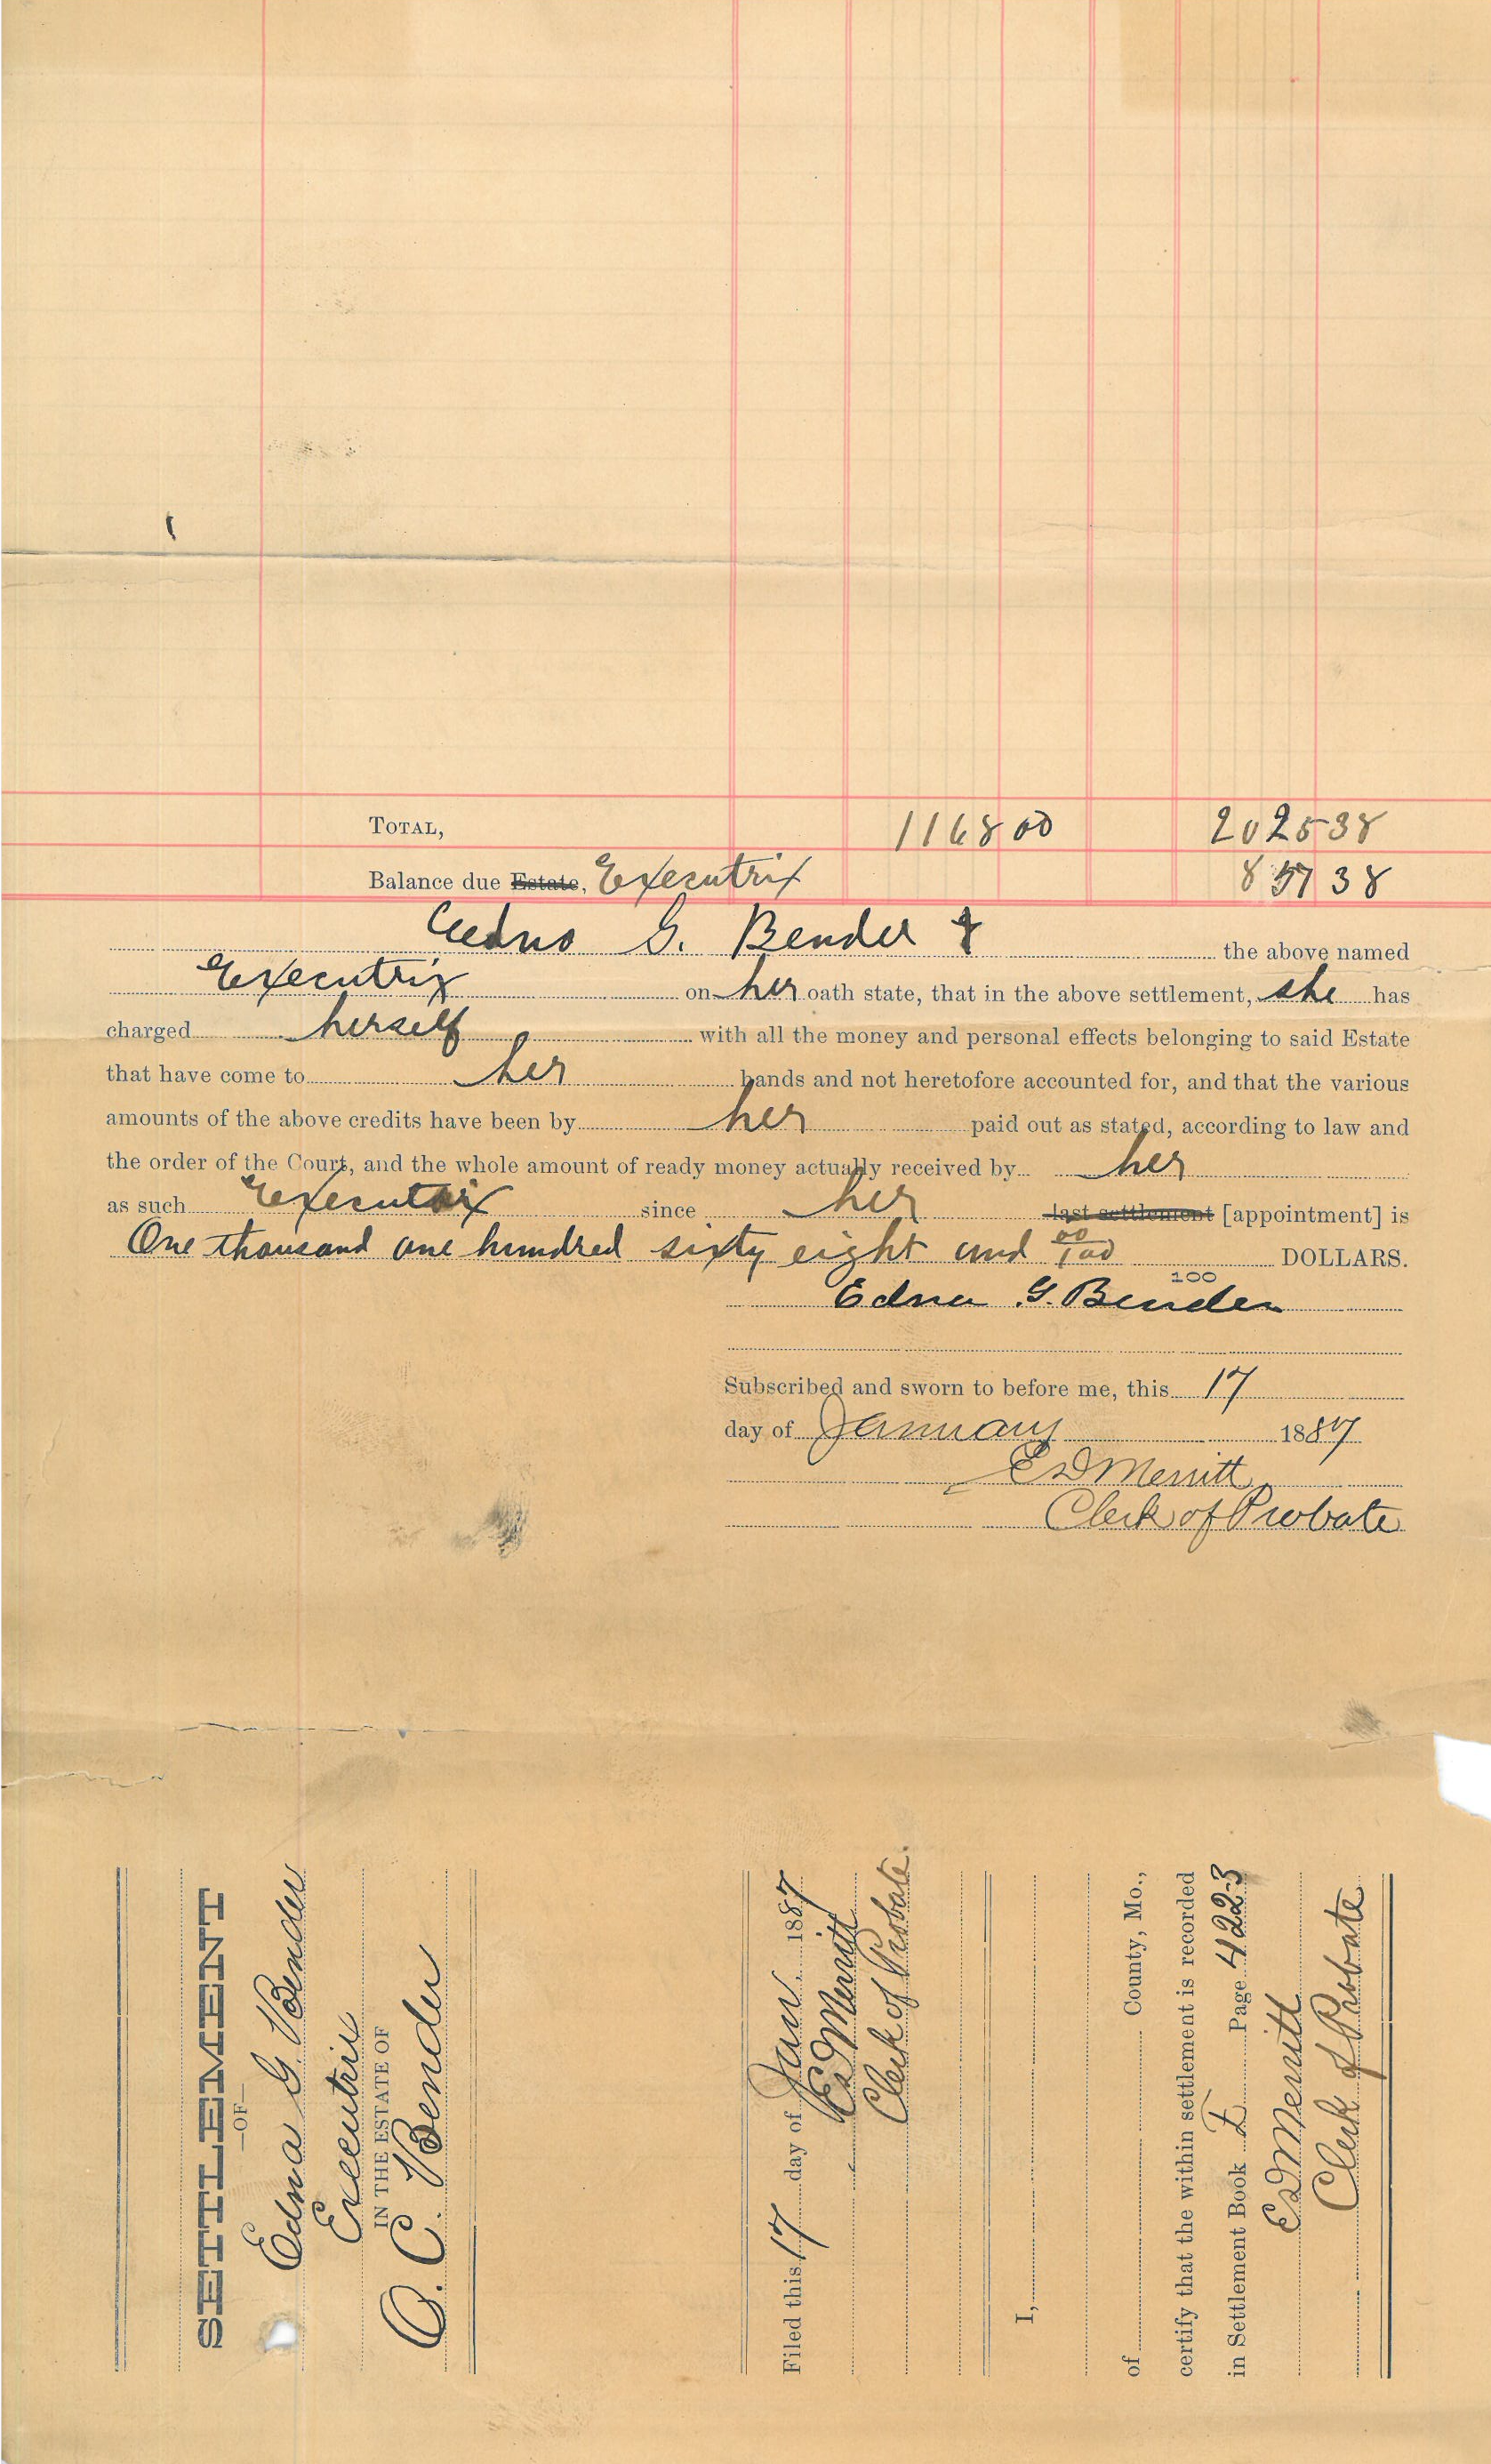 TOTAL, 1168 00 2025 38
Balance due ~~Estate~~, Executrix 857 38
G. Bender the above named
Executrix on her oath state, that in the above settlement, she has
charged herself with all the money and personal effects belonging to said Estate
that have come to her hands and not heretofore accounted for, and that the various
amounts of the above credits have been by her paid out as stated, according to law and
the order of the Court, and the whole amount of ready money actually received by her
as such Executrix since her ~~last settlement~~ [appointment] is
One thousand one hundred sixty eight and 00/100 DOLLARS.
100
Edna G. Bender
Subscribed and sworn to before me, this 17
day of January 1887
E D Merritt
Clerk of Probate
SETTLEMENT
—OF—
Edna G. Bender
Executrix
IN THE ESTATE OF
O. C. Bender
Filed this 17 day of Jan 1887
E D Merritt
Clerk of Probate.
I,
of County, Mo.,
certify that the within settlement is recorded
in Settlement Book F Page 422-3
E D Merritt
Clerk of Probate